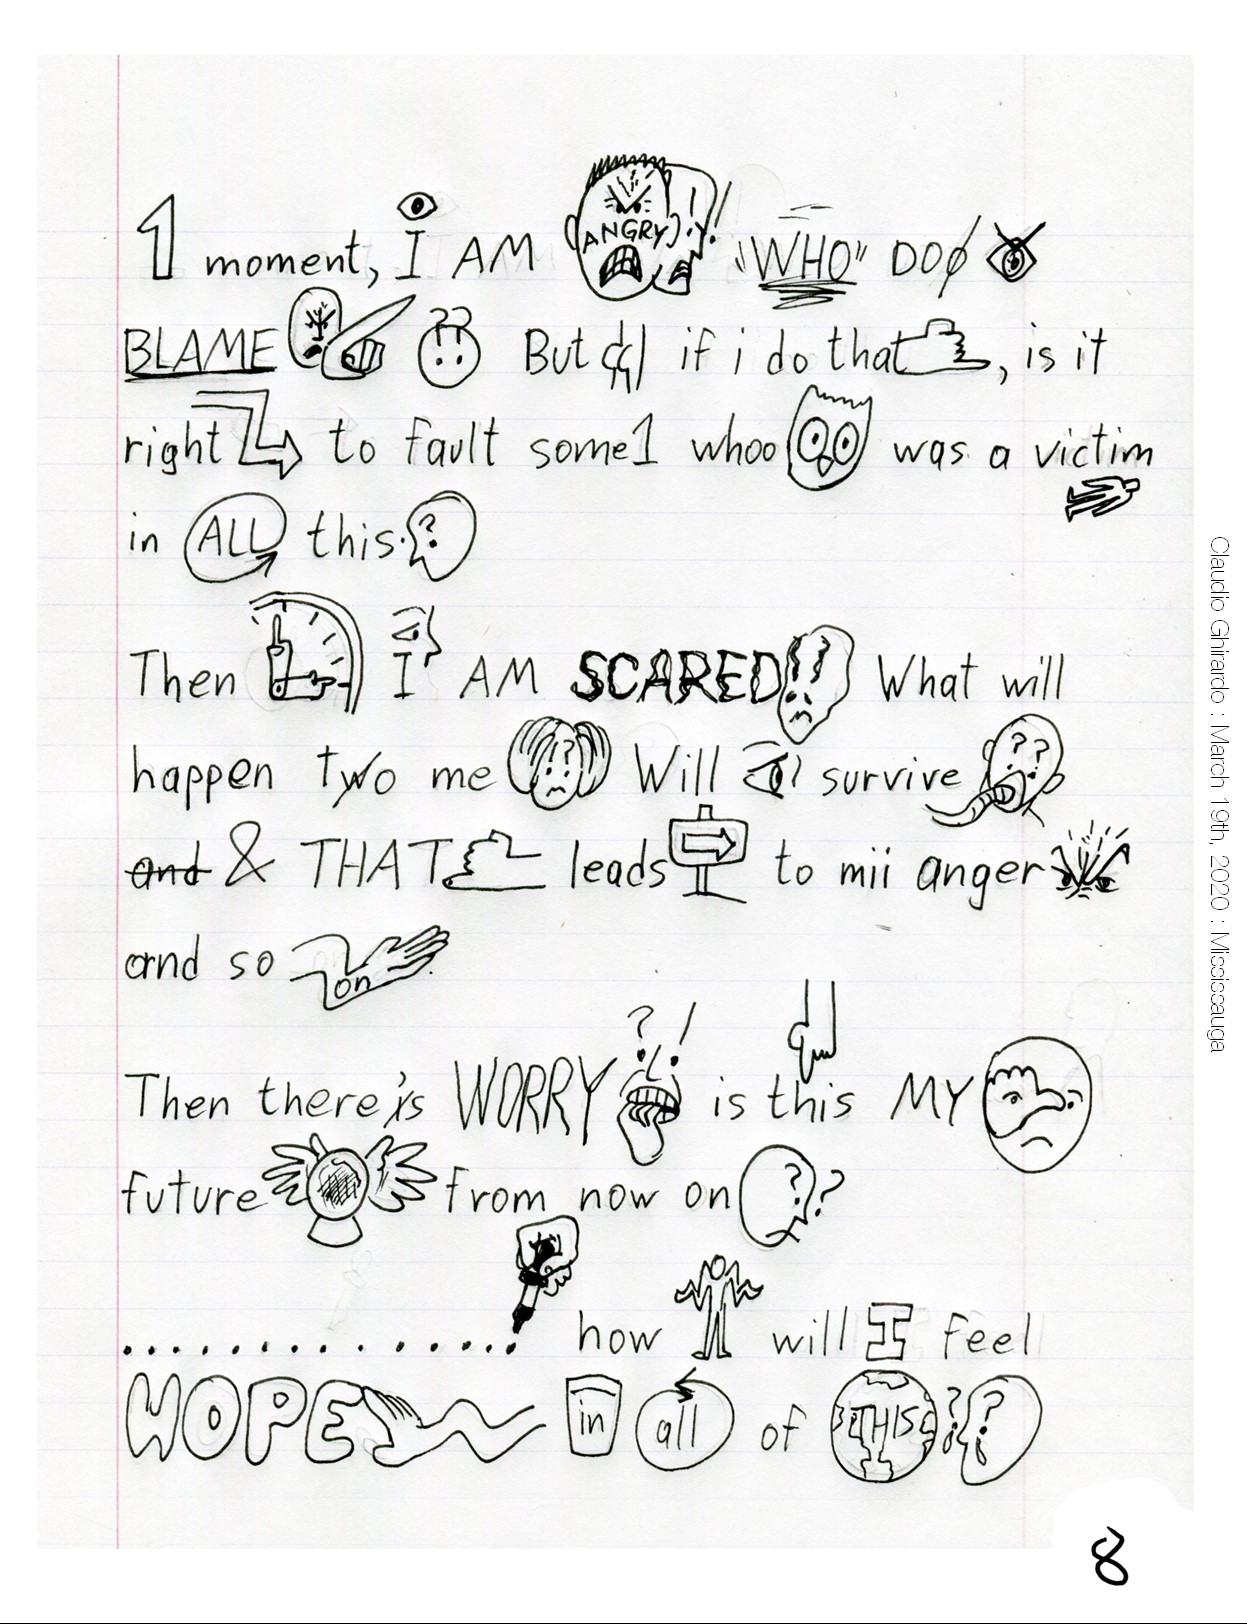 1 moment, I AM ANGRY! "WHO" DOO
BLAME ?? But if i do that, is it
right to fault some1 whoo was a victim
in ALL this?
Then I AM SCARED!! What will
happen two me !? Will survive ??
and & THAT leads to mii anger
and so on
Then there's is WORRY ?! is this MY
future from now on ??
............... how will I feel
HOPE in all of THIS ??
8
Claudio Ghirardo : March 19th, 2020 : Mississauga